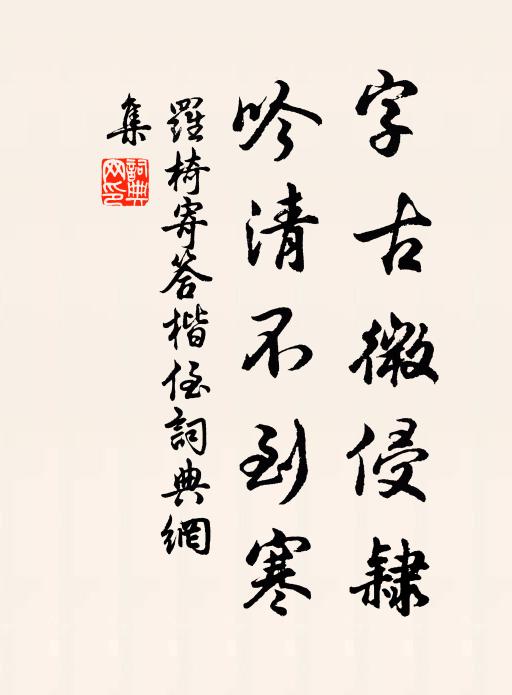 字古微侵隸
吟清不到寒
羅椅寄答楷侄詞典網
集
詞典
网印